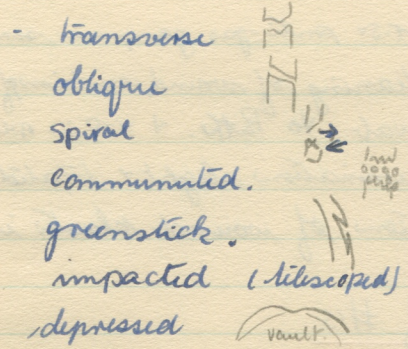 - transverse
oblique
spiral
communuted.
greenstick.
impacted (telescoped)
depressed
vault.